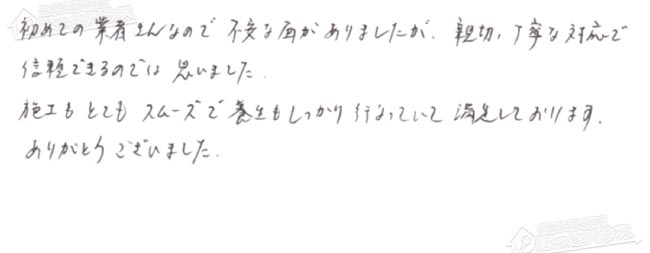 初めての業者さんなので不安な面がありましたが、親切、丁寧な対応で
信頼できるのでは思いました.
施工もとてもスムーズで養生もしっかり行なっていて満足しております.
ありがとうございました.